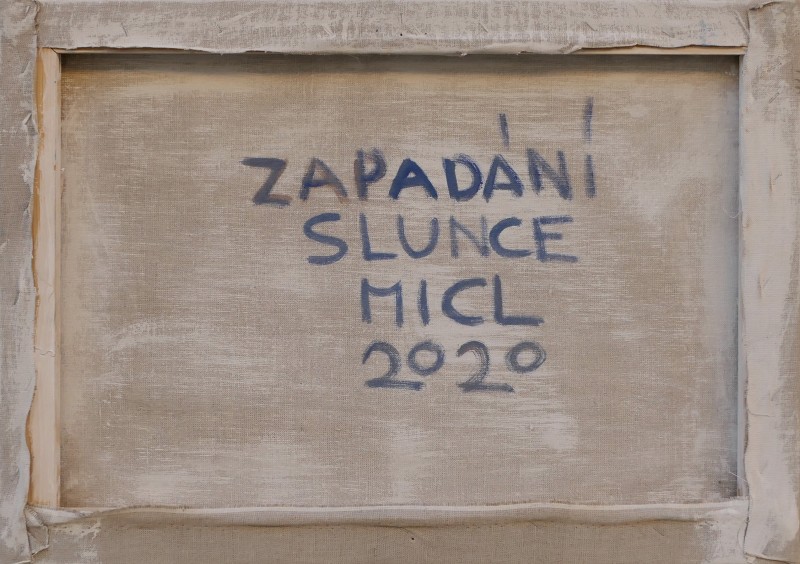 ZAPADÁNÍ
SLUNCE
MICL
2020